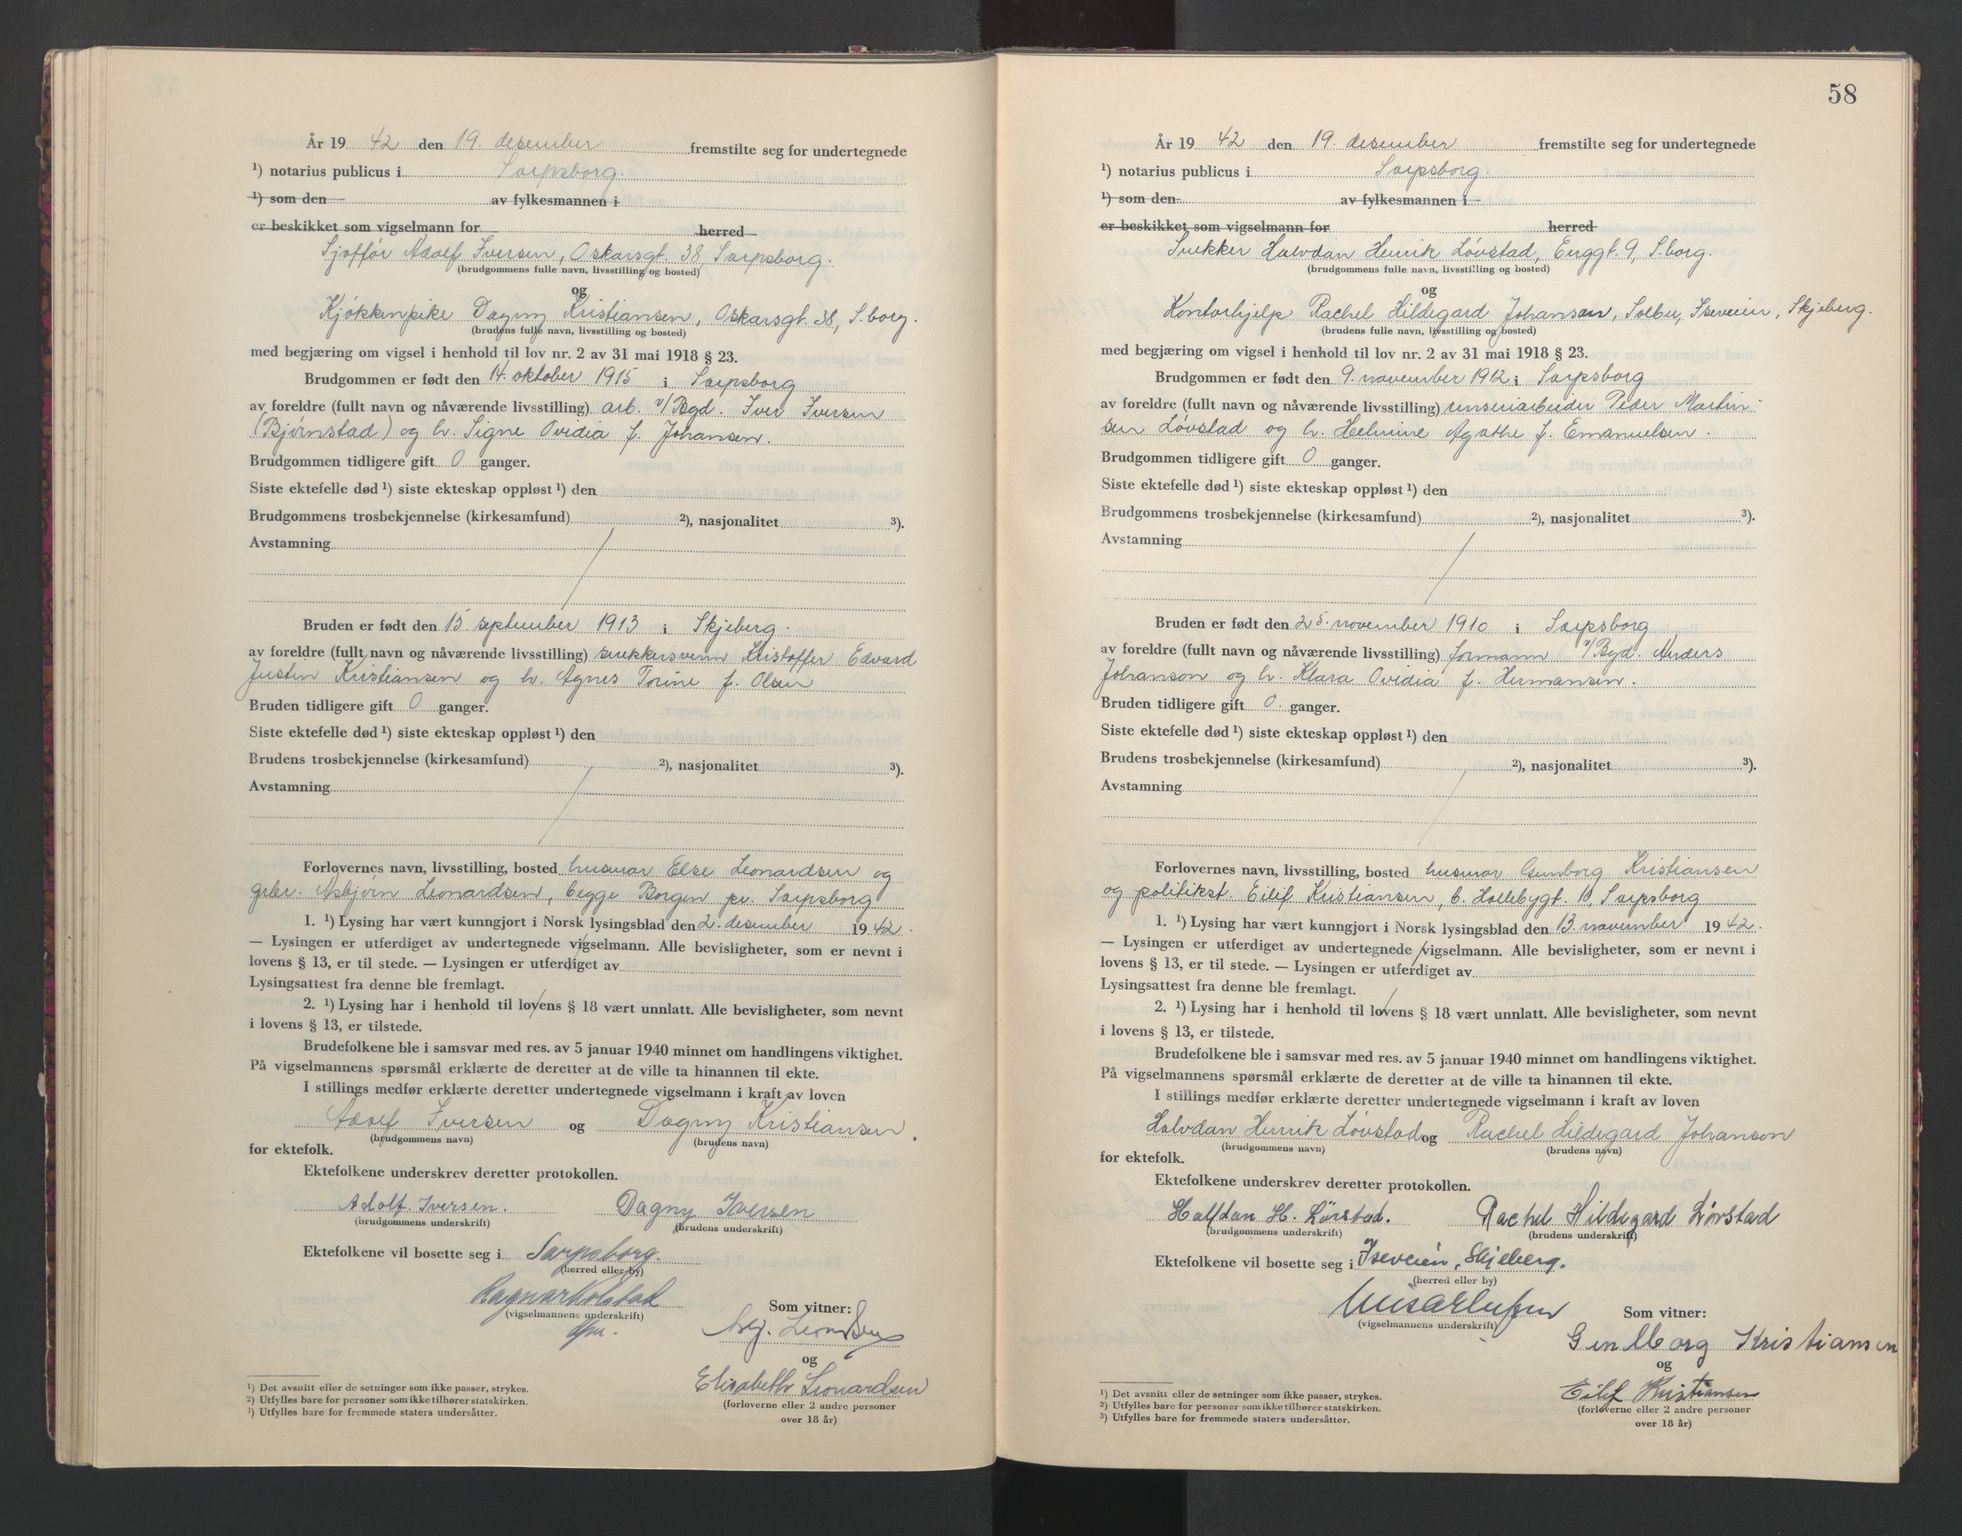 År 19 42 den 19. desember fremstilte seg for undertegnede
¹) notarius publicus i Sarpsborg.
¹) som den av fylkesmannen i
er beskikket som vigselmann for herred
Sjøffør Adolf Iversen, Oskarsgt. 38, Sarpsborg.
(brudgommens fulle navn, livsstilling og bosted)
og
Kjøkkenpike Dagny Kristiansen, Oskarsgt. 38, S.borg.
(brudens fulle navn, livsstilling og bosted)
med begjæring om vigsel i henhold til lov nr. 2 av 31 mai 1918 § 23.
Brudgommen er født den 14. oktober 1915 i Sarpsborg
av foreldre (fullt navn og nåværende livsstilling) arb. v/Bgd. Iver Iversen
(Bjørnstad) og h. Signe Ovidia f. Johansen.
Brudgommen tidligere gift 0 ganger.
Siste ektefelle død ¹) siste ekteskap oppløst ¹) den
Brudgommens trosbekjennelse (kirkesamfund) ²), nasjonalitet ³).
Avstamning
Bruden er født den 15. september 1913 i Skjeberg.
av foreldre (fullt navn og nåværende livsstilling) snekkersvenn Kristoffer Edvard
Justin Kristiansen og h. Agnes Torine f. Olsen
Bruden tidligere gift 0 ganger.
Siste ektefelle død ¹) siste ekteskap oppløst ¹) den
Brudens trosbekjennelse (kirkesamfund) ²), nasjonalitet ³).
Avstamning
Forlovernes navn, livsstilling, bosted husmor Else Leonardsen og
grbr. Asbjørn Leonardsen, begge Borgen pr. Sarpsborg
1. ¹) Lysing har vært kunngjort i Norsk lysingsblad den 2. desember 19 42.
— Lysingen er utferdiget av undertegnede vigselmann. Alle bevisligheter, som er nevnt i
lovens § 13, er til stede. — Lysingen er utferdiget av
Lysingsattest fra denne ble fremlagt.
2. ¹) Lysing har i henhold til lovens § 18 vært unnlatt. Alle bevisligheter, som nevnt
i lovens § 13, er tilstede.
Brudefolkene ble i samsvar med res. av 5 januar 1940 minnet om handlingens viktighet.
På vigselmannens spørsmål erklærte de deretter at de ville ta hinannen til ekte.
I stillings medfør erklærte deretter undertegnede vigselmann i kraft av loven
Adolf Iversen og Dagny Kristiansen.
(brudgommens navn) (brudens navn)
for ektefolk.
Ektefolkene underskrev deretter protokollen.
Adolf. Iversen. Dagny Iversen
(brudgommens underskrift) (brudens underskrift)
Ektefolkene vil bosette seg i Sarpsborg.
(herred eller by)
Ragnar Kolstad Som vitner:
(vigselmannens underskrift)
og
Elisabeth Leonardsen
(forloverne eller 2 andre personer
over 18 år)
¹) Det avsnitt eller de setninger som ikke passer, strykes.
²) Utfylles bare for personer som ikke tilhører statskirken.
³) Utfylles bare for fremmede staters undersåtter.
58
År 19 42 den 19. desember fremstilte seg for undertegnede
¹) notarius publicus i Sarpsborg.
¹) som den av fylkesmannen i
er beskikket som vigselmann for herred
Snekker Halvdan Henrik Løvstad, Enggt. 9, S.borg.
(brudgommens fulle navn, livsstilling og bosted)
og
Kontorhjelp Rachel Hildegard Johanson, Solbu, Iseveien, Skjeberg.
(brudens fulle navn, livsstilling og bosted)
med begjæring om vigsel i henhold til lov nr. 2 av 31 mai 1918 § 23.
Brudgommen er født den 9. november 1912 i Sarpsborg
av foreldre (fullt navn og nåværende livsstilling) renseriarbeider Peder Martin-
sen Løvstad og h. Helmine Agathe f. Emanuelsen.
Brudgommen tidligere gift 0 ganger.
Siste ektefelle død ¹) siste ekteskap oppløst ¹) den
Brudgommens trosbekjennelse (kirkesamfund) ²), nasjonalitet ³).
Avstamning
Bruden er født den 25. november 1910 i Sarpsborg
av foreldre (fullt navn og nåværende livsstilling) formann v/Bgd. Anders
Johanson og h. Klara Ovidia f. Hermansen.
Bruden tidligere gift 0. ganger.
Siste ektefelle død ¹) siste ekteskap oppløst ¹) den
Brudens trosbekjennelse (kirkesamfund) ²), nasjonalitet ³).
Avstamning
Forlovernes navn, livsstilling, bosted husmor Gunborg Kristiansen
og politikst. Eilif Kristiansen, b. Hollebygt. 10, Sarpsborg
1. ¹) Lysing har vært kunngjort i Norsk lysingsblad den 13. november 19 42.
— Lysingen er utferdiget av undertegnede vigselmann. Alle bevisligheter, som er nevnt i
lovens § 13, er til stede. — Lysingen er utferdiget av
Lysingsattest fra denne ble fremlagt.
2. ¹) Lysing har i henhold til lovens § 18 vært unnlatt. Alle bevisligheter, som nevnt
i lovens § 13, er tilstede.
Brudefolkene ble i samsvar med res. av 5 januar 1940 minnet om handlingens viktighet.
På vigselmannens spørsmål erklærte de deretter at de ville ta hinannen til ekte.
I stillings medfør erklærte deretter undertegnede vigselmann i kraft av loven
Halvdan Henrik Løvstad og Rachel Hildegard Johanson
(brudgommens navn) (brudens navn)
for ektefolk.
Ektefolkene underskrev deretter protokollen.
Halfdan H. Lørstad. Rachel Hildegard Lørstad
(brudgommens underskrift) (brudens underskrift)
Ektefolkene vil bosette seg i Iseveien, Skjeberg.
(herred eller by)
Som vitner:
(vigselmannens underskrift)
Kristiansen
og
Eilif Kristiansen
(forloverne eller 2 andre personer
over 18 år)
¹) Det avsnitt eller de setninger som ikke passer, strykes.
²) Utfylles bare for personer som ikke tilhører statskirken.
³) Utfylles bare for fremmede staters undersåtter.